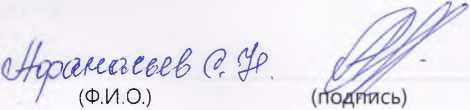 Афанасьев С. Н.
(Ф.И.О.) (подпись)